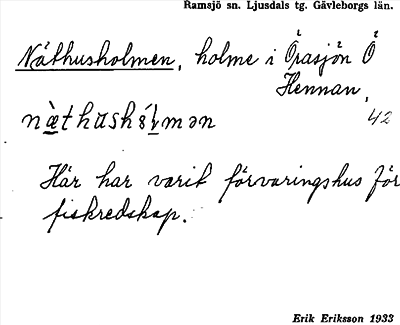 Ramsjö sn. Ljusdals tg. Gävleborgs län.
Näthusholmen, holme i Örasjön Ö
Hennan,
42
Här har varit förvaringshus för
fiskredskap.
Erik Eriksson 1933